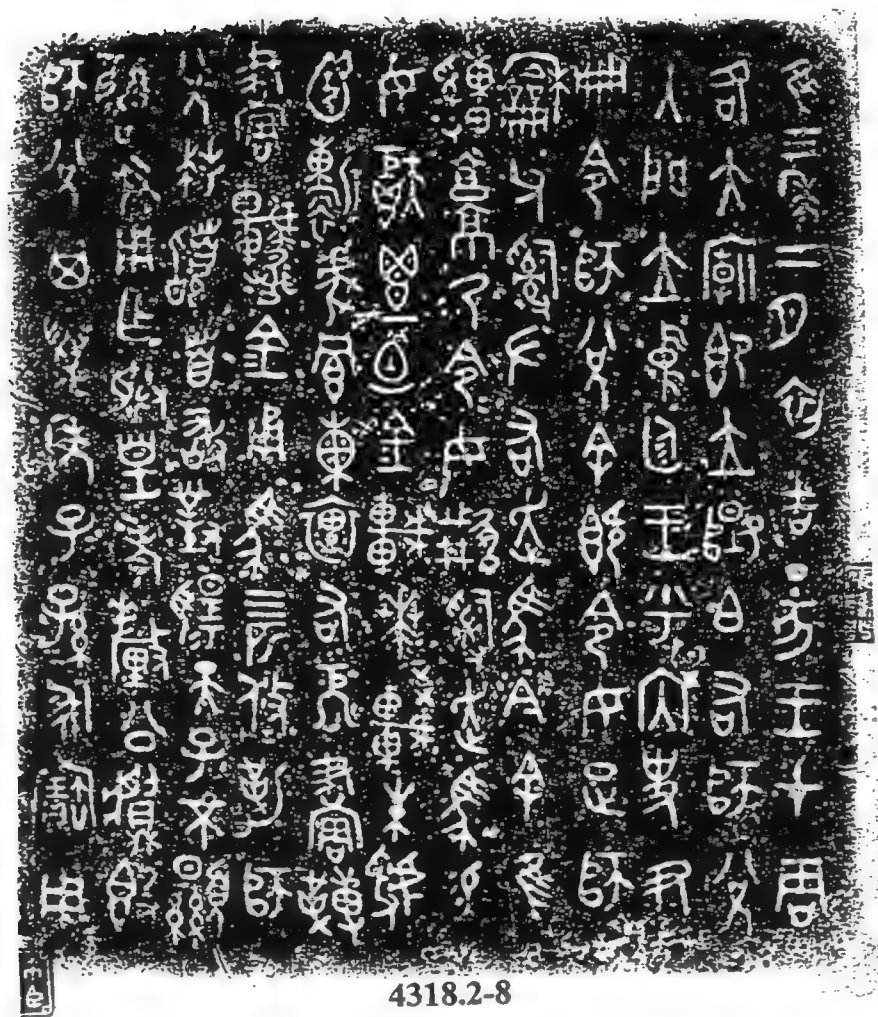 隹三年二月初吉丁亥王才周
各大廟即立𨟻白右師兌
入門立中廷王乎內史尹
冊令師兌余既令女疋師
龢父𤔲左右走馬今余隹
𤕌𩫖乃令女𤔲走馬易
女秬鬯一卣金車𠦪較朱虢
靳虎冟熏裏右厄畫𩌏
畫䡅金甬馬四匹攸勒師
兌拜𩒨首敢對揚天子不顯
魯休用乍朕皇考釐公䵼簋
師兌其萬年子子孫孫永寶用
4318.2-8